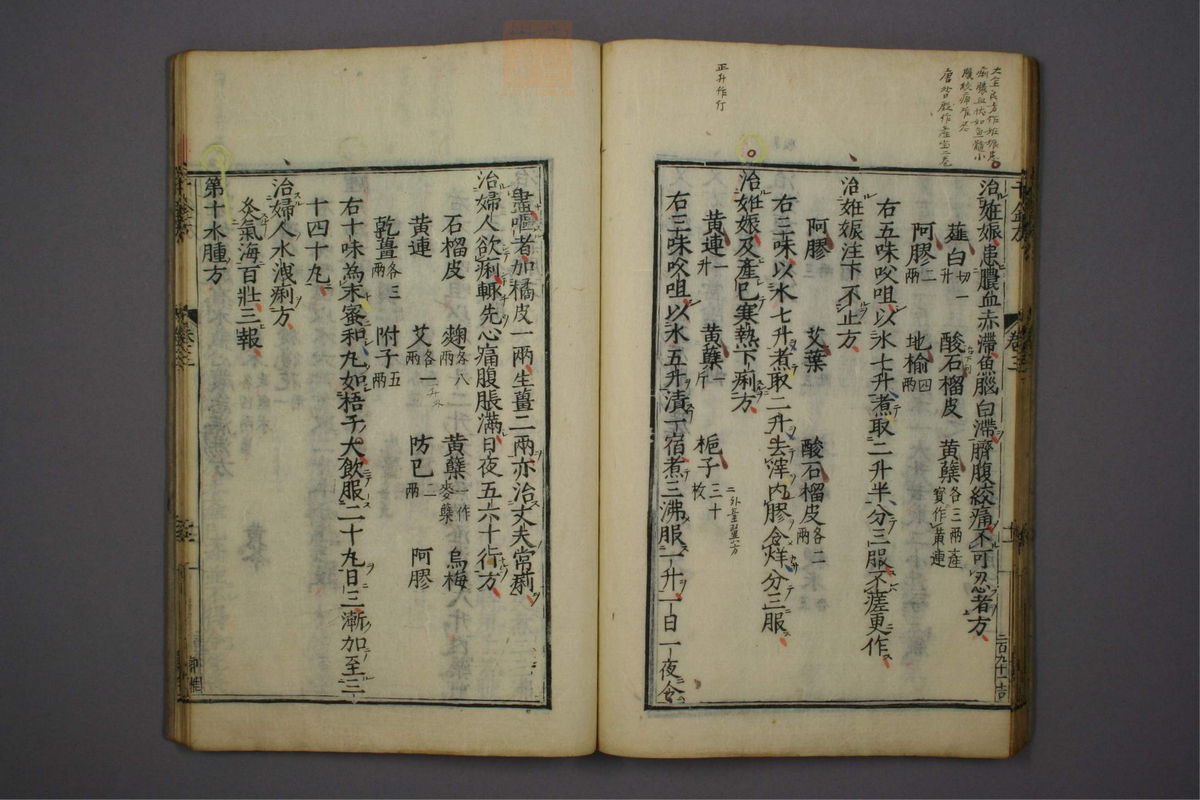 治妊娠患膿血赤滯魚腦白滯臍腹絞痛不可忍者方
薤白切一升 酸石榴皮 黃蘗各三兩產寶作黃連
阿膠二兩 地榆四兩
右五味㕮咀以水七升煮取二升半分三服不差更作
治妊娠注下不止方
阿膠 艾葉 酸石榴皮各二兩
右三味以水七升煮取二升去滓內膠令烊分三服
治妊娠及產已寒熱下痢方
黃連一升 黃蘗一斤 梔子三十枚
右三味㕮咀以水五升漬一宿煮三沸服一升一日一夜令
盡嘔者加橘皮一兩生薑二兩亦治丈夫常痢
治婦人欲痢輒先心痛腹脹滿日夜五六十行方
石榴皮 麴各八兩 黃蘗一作麥蘗 烏梅
黃連 艾各一兩 防已二兩 阿膠
乾薑各三兩 附子五兩
右十味為末蜜和丸如梧子大飲服二十丸日三漸加至三
十四十丸
治婦人水洩痢方
灸氣海百壯三報
第十水腫方
正 升作斤
千金方 卷三